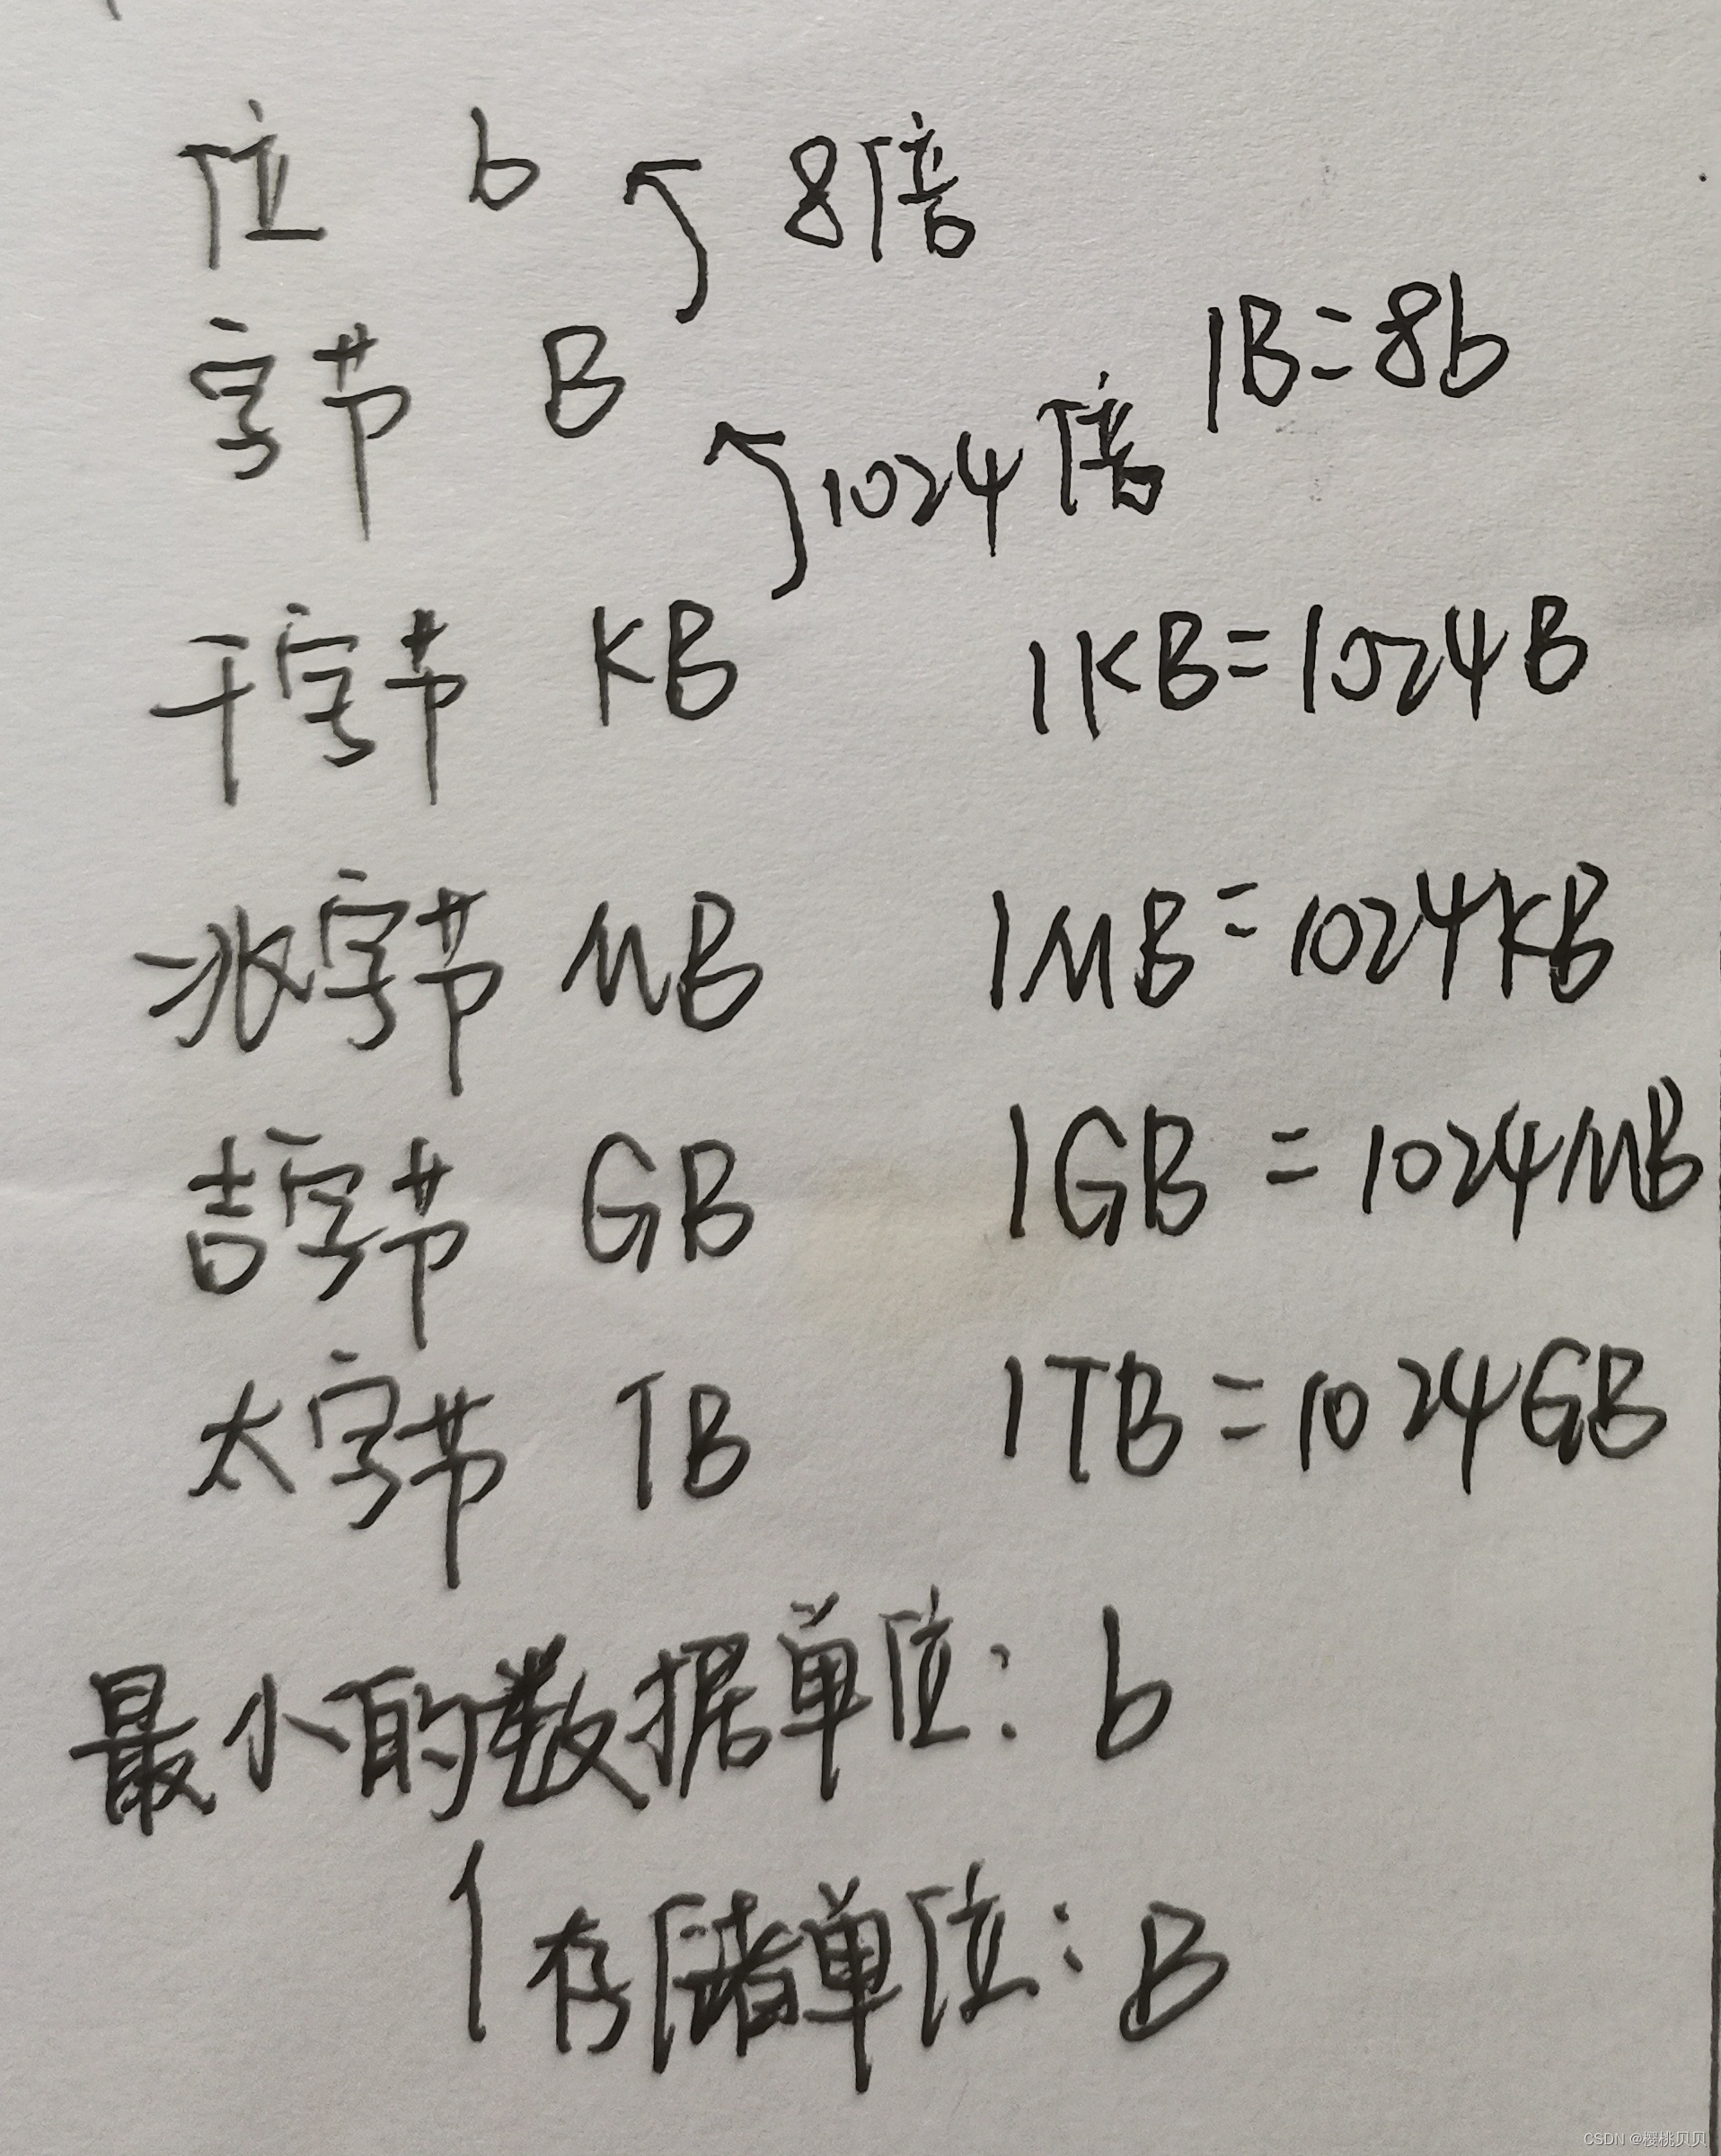 位 b 8倍
字节 B 1B=8b
1024倍
千字节 KB 1KB=1024B
兆字节 MB 1MB=1024KB
吉字节 GB 1GB=1024MB
太字节 TB 1TB=1024GB
最小的数据单位: b
存储单位: B
CSDN @樱桃贝贝